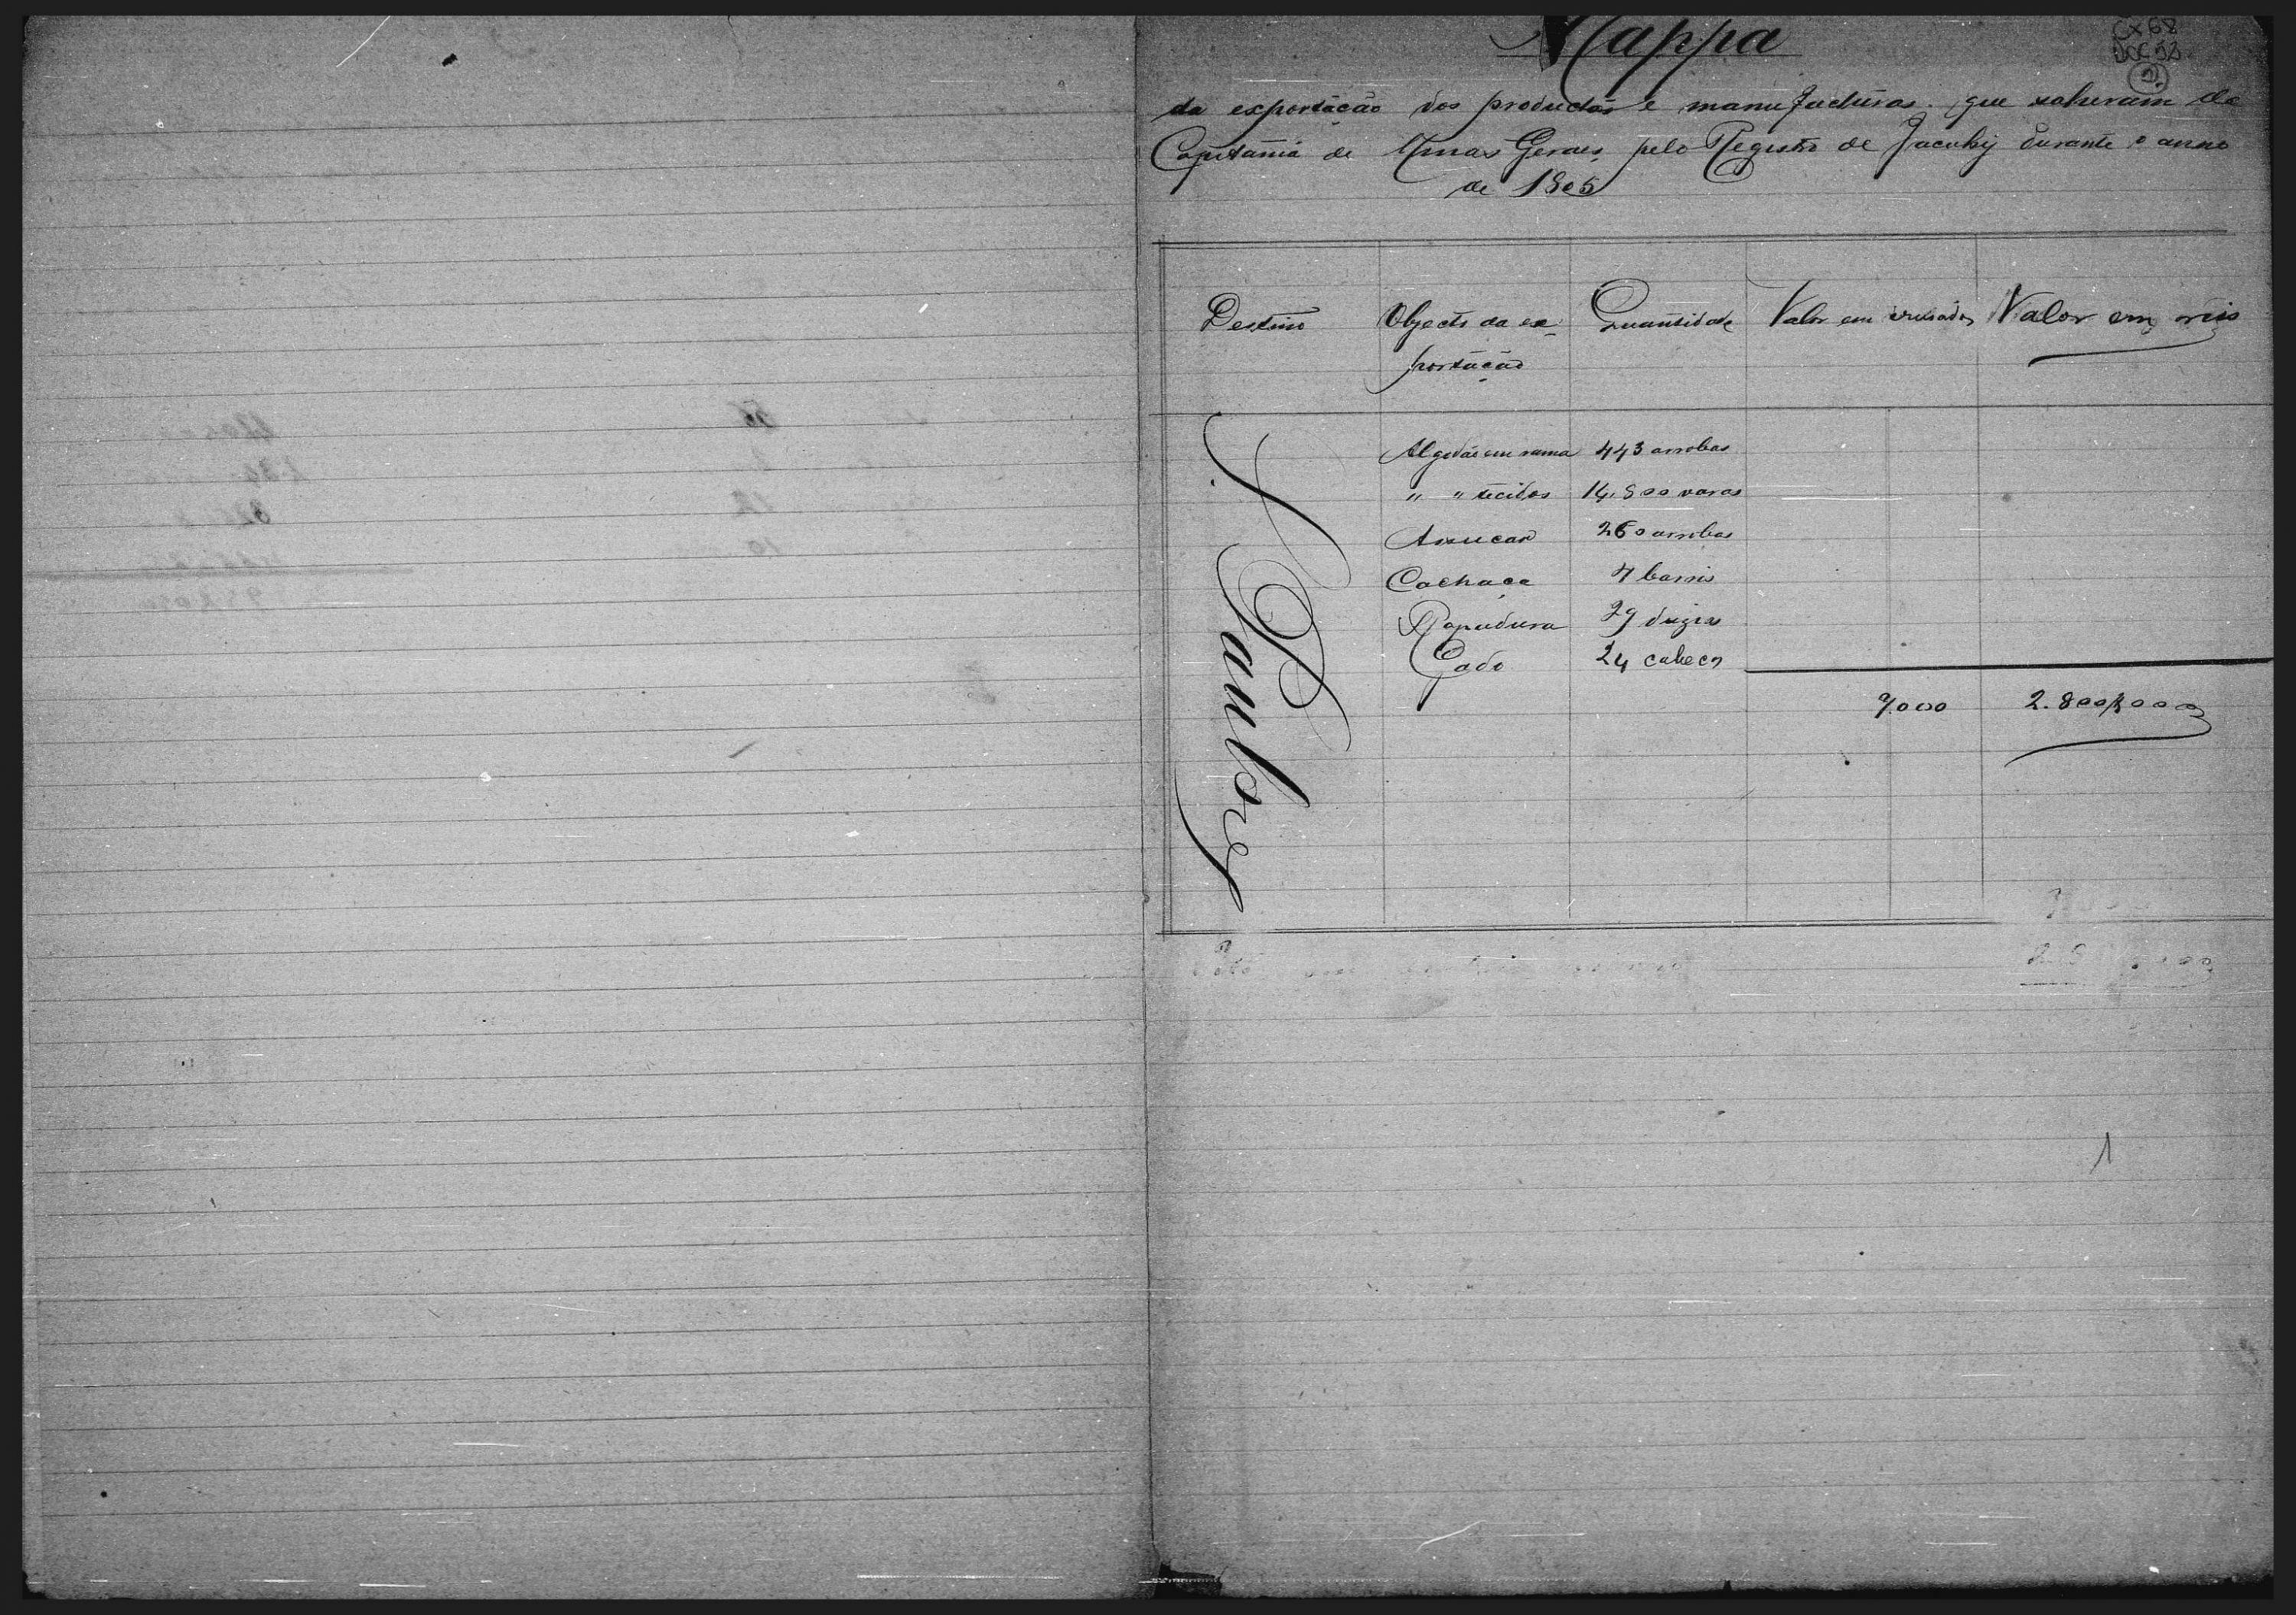 Mappa
CX 68
DOC 52
da exportação dos productos e manufacturas que sahiram da
Capitania de Minas Geraes, pelo Registro de Jacuhy durante o anno
de 1805
Destino
Objecto da ex-
portação
Quantidade
Valor em crusados
Valor em reis
S. Paulo
Algodão em rama 443 arrobas
" " tecidos 14.800 varas
Assucar 260 arrobas
Cachaça 4 barris
Rapadura 29 duzias
Gado 24 cabeças
7.000 2.800$000
1